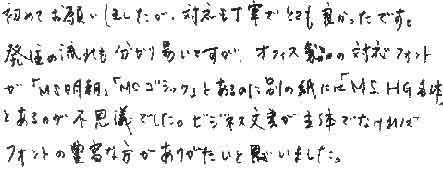 初めてお願いしましたが、対応も丁寧でとても良かったです。
発注の流れも分かり易いですが、オフィス製品の対応フォント
が「MS明朝」「MSゴシック」とあるのに別の紙には「MS HG書体」
とあるのが不思議でした。ビジネス文書が主体でなければ
フォントの豊富な方がありがたいと思いました。